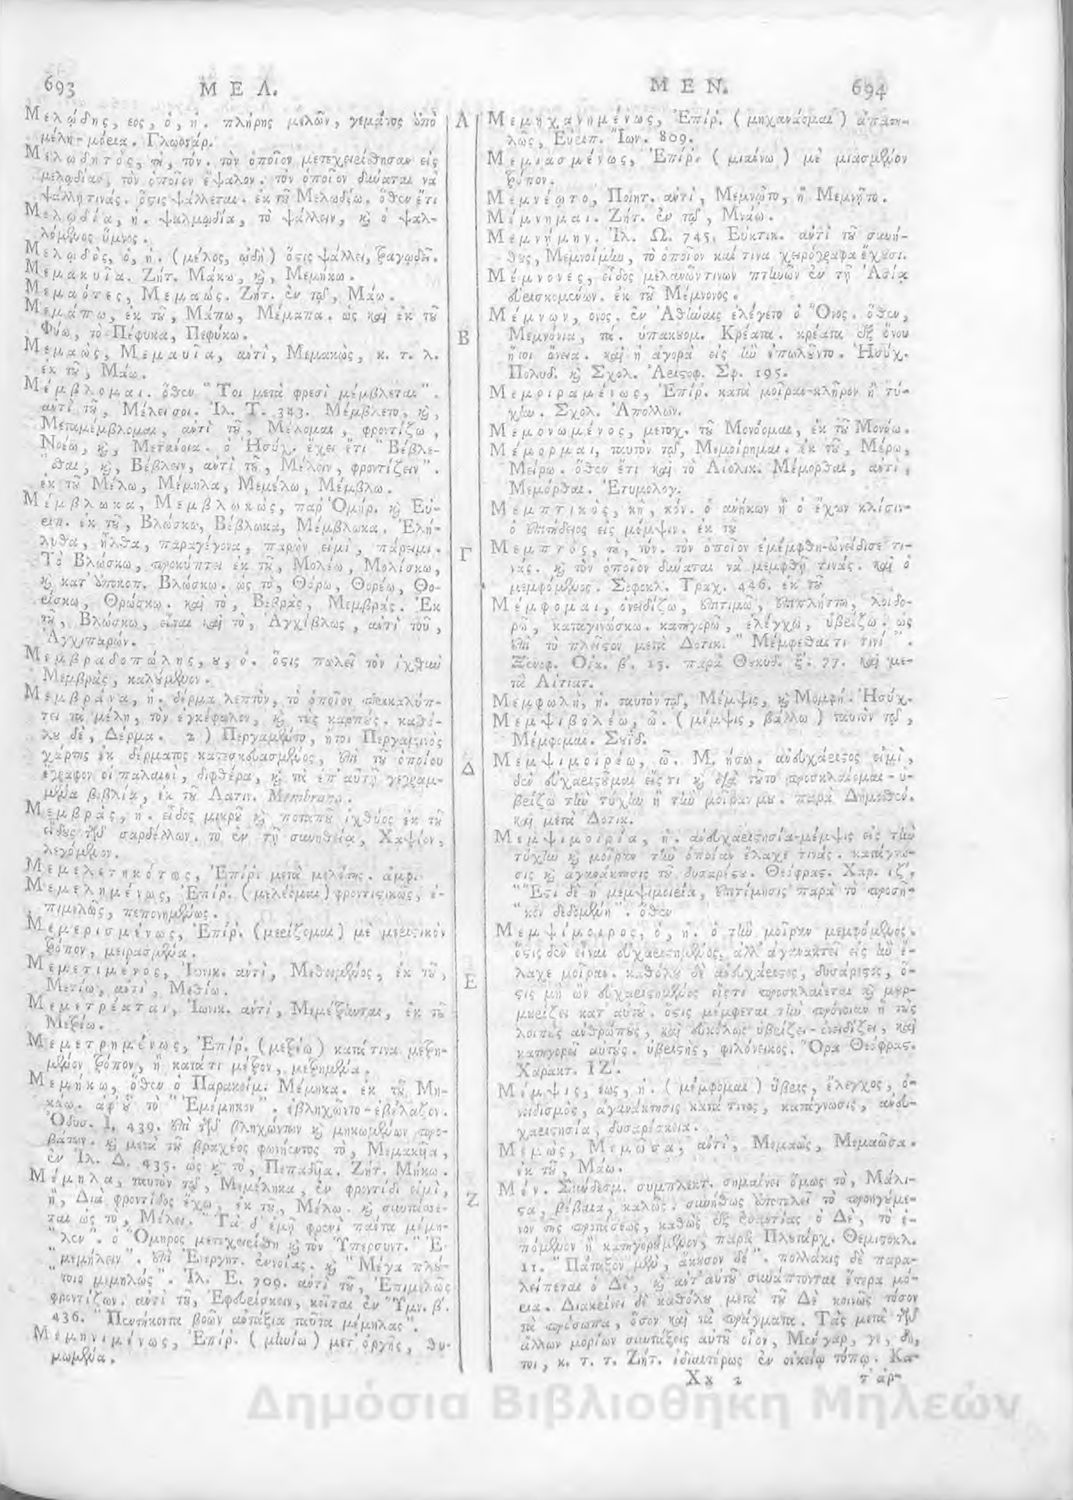 693 ΜΕΛ.
Μελῴδης, εος, ὁ, ἡ. πλήρης μελῶν, γεμάτος ἀπὸ
μέλη - μόεια. Γλωσσάρ.
Μελῳδητὸς, τὴ, τόν. τὸν ὁποῖον μετεχειρίσθησαν εἰς
μελῳδίαν, τὸν ὁποῖον ἔψαλον. τὸν ὁποῖον δύναται νὰ
ψάλλῃ τινάς. ὅστις ψάλλεται. ἐκ τοῦ Μελῳδέω. ὅθεν ἔτι
Μελῳδία, ἡ. ψαλμῳδία, τὸ ψάλλειν, καὶ ὁ ψαλ-
λόμενος ὕμνος.
Μελῳδὸς, ὁ, ἡ. (μέλος, ᾠδὴ) ὅστις ψάλλει, τραγῳδεῖ.
Μεμακυῖα. Ζήτ. Μάκω, καὶ, Μεμήκω.
Μεμαότες, Μεμαώς. Ζήτ. ἐν τῷ, Μάω.
Μεμάπω, ἐκ τοῦ, Μάπω, Μέμαπα. ὡς καὶ ἐκ τοῦ
Φύω, τὸ Πέφυκα, Πεφύκω.
Μεμαὼς, Μεμαυῖα, ἀντὶ, Μεμακὼς, κ. τ. λ.
ἐκ τοῦ, Μάω.
Μέμβλομαι. ὅθεν " Τοι μετὰ φρεσὶ μέμβλεται".
ἀντὶ τοῦ, Μέλει σοι. Ἰλ. Τ. 343. Μέμβλετο, καὶ,
Μεταμέμβλομαι, ἀντὶ τοῦ, Μέλομαι, φροντίζω,
Νοέω, καὶ, Μετανοια. ὁ Ἡσύχ. ἔχει ἔτι " Βέβλε-
"σθαι, καὶ, Βέβλειν, ἀντὶ τοῦ, Μέλειν, φροντίζειν".
ἐκ τοῦ Μέλω, Μέμηλα, Μεμέλω, Μέμβλω.
Μέμβλωκα, Μεμβλωκὼς, παρ' Ὁμήρ. καὶ Εὐ-
ριπ. ἐκ τοῦ, Βλώσκω, Βέβλωκα, Μέμβλωκα. Ἐλή-
λυθα, ἦλθα, παραγέγονα, παρὼν εἰμὶ, πάρειμι.
Τὸ Βλώσκω, προκύπτει ἐκ τοῦ, Μολέω, Μολίσκω,
καὶ κατ' ὑποκοπ. Βλώσκω. ὡς τὸ, Θόρω, Θορέω, Θο-
ρίσκω, Θρώσκω. καὶ τὸ, Βεβρὰς, Μεμβράς. Ἐκ
τοῦ, Βλώσκω, εἶναι καὶ τὸ, Ἀγχίβλως, ἀντὶ τοῦ,
Ἀγχιπαρών.
Μεμβραδοπώλης, ου, ὁ. ὅστις πωλεῖ τὸν ἰχθὺν
Μεμβρὰς, καλούμενον.
Μεμβράνα, ἡ. δέρμα λεπτὸν, τὸ ὁποῖον περικαλύπ-
τει τὰ μέλη, τὸν ἐγκέφαλον, καὶ τοὺς καρπούς. καθό-
λου δὲ, Δέρμα. 2) Περγαμηνὸ, ἤτοι Περγαμηνὸς
χάρτης ἐκ δέρματος κατεσκευασμένος, ἐπὶ τοῦ ὁποίου
ἔγραφον οἱ παλαιοὶ, διφθέρα, καὶ τὰ ἐπ' αὐτῇ γεγραμ-
μένα βιβλία, ἐκ τοῦ Λατιν. Membrana.
Μεμβρὰς, ἡ. εἶδος μικροῦ καὶ ποταποῦ ἰχθύος ἐκ τοῦ
εἴδους τῶν σαρδέλλων. τὸ ἐν τῇ συνηθείᾳ, Χαψίον,
λεγόμενον.
Μεμελετηκότως, Ἐπίρ. μετὰ μελέτης. ἀμφι.
Μεμελημένως, Ἐπίρ. (μελέομαι) φροντιστικῶς, ἐ-
πιμελῶς, πεπονημένως.
Μεμερισμένως, Ἐπίρ. (μερίζομαι) μὲ μεριστικὸν
τρόπον, μοιρασμένα.
Μεμετιμένος, Ἰωνικ. ἀντὶ, Μεθειμένος, ἐκ τοῦ,
Μετίω, ἀντὶ, Μεθίω.
Μεμετρέαται, Ἰωνικ. ἀντὶ, Μεμέτρηνται, ἐκ τοῦ
Μετρέω.
Μεμετρημένως, Ἐπίρ. (μετρέω) κατά τινα μετρη-
μένον τρόπον, ἢ κατά τι μέτρον, μετρημένα.
Μεμήκω, ὅθεν ὁ Παρακείμ. Μέμηκα. ἐκ τοῦ Μη-
κάω. ἀφ' οὗ τὸ " Ἐμέμηκον". ἐβληχῶντο - ἐβέλαζον.
Ὀδυσ. Ι. 439. ἐπὶ τῶν βληχώντων καὶ μηκωμένων προ-
βάτων. καὶ μετὰ τοῦ βραχέος φωνήεντος τὸ, Μεμακυῖα,
ἐν Ἰλ. Δ. 435. ὡς καὶ τὸ, Πεπαθυῖα. Ζήτ. Μήκω.
Μέμηλα, ταυτὸν τῷ, Μεμέληκα, ἐν φροντίδι εἰμὶ,
ἢ, Διὰ φροντίδος ἔχω, ἐκ τοῦ, Μέλω. καὶ συντάσσε-
ται ὡς τὸ, Μέλει. " Τὰ δ' ἐμῇ φρενὶ πάντα μεμή-
"λεν". ὁ Ὅμηρος μετεχειρίσθη καὶ τὸν Ὑπερσυντ. "Ἐ-
„μεμήλειν". ἐπὶ Ἐνεργητ. ἐννοίας. καὶ " Μέγα πλού-
τοιο μεμηλώς". Ἰλ. Ε. 709. ἀντὶ τοῦ, Ἐπιμελῶς
φροντίζων. ἀντὶ τοῦ, Ἐφευρίσκειν, κεῖται ἐν Ὕμν. β'.
436. " Πεντήκοντα βοῶν ἀντάξια ταῦτα μέμηλας".
Μεμηνιμένως, Ἐπίρ. (μηνίω) μετ' ὀργῆς, θυ-
μωμένα.
Α
Β
Γ
Δ
Ε
Ζ
ΜΕΝ. 694
Μεμηχανημένως, Ἐπίρ. (μηχανάομαι) ἀπατη-
λῶς, Εὐριπ. Ἴων. 809.
Μεμιασμένως, Ἐπίρ. (μιαίνω) μὲ μιασμένον
τρόπον.
Μεμνέῳτο, Ποιητ. ἀντὶ, Μεμνῷτο, ἢ Μεμνῇτο.
Μέμνημαι. Ζήτ. ἐν τῷ, Μνάω.
Μεμνήμην. Ἰλ. Ω. 745. Εὐκτικ. ἀντὶ τοῦ συνή-
θους, Μεμνοίμην, τὸ ὁποῖον καί τινα χειρόγραφα ἔχουσι.
Μέμνονες, εἶδος μελανῶν τινων πτηνῶν ἐν τῇ Ἀσίᾳ
εὑρισκομένων. ἐκ τοῦ Μέμνονος.
Μέμνων, ονος. ἐν Ἀθήναις ἐλέγετο ὁ Ὄνος. ὅθεν,
Μεμνόνια, τά. ὑπακουομ. Κρέατα. κρέατα ἐξ ὄνου
ἤτοι ὄνεια. καὶ ἡ ἀγορὰ εἰς ἣν ἐπωλοῦντο. Ἡσύχ.
Πολυδ. καὶ Σχολ. Ἀριστοφ. Σφ. 195.
Μεμοιραμένως, Ἐπίρ. κατὰ μοῖραν-κλῆρον ἢ τύ-
χην. Σχολ. Ἀπολλων.
Μεμονωμένος, μετοχ. τοῦ Μονόομαι, ἐκ τοῦ Μονόω.
Μέμορμαι, ταυτὸν τῷ, Μεμοίρημαι. ἐκ τοῦ, Μέρω,
Μείρω. ὅθεν ἔτι καὶ τὸ Αἰολικ. Μέμορθαι, ἀντὶ,
Μεμόρθαι. Ἐτυμολογ.
Μεμπτικὸς, κὴ, κόν. ὁ ἀνήκων ἢ ὁ ἔχων κλίσιν-
ὁ ἐπιτήδειος εἰς μέμψιν. ἐκ τοῦ
Μεμπτὸς, τὴ, τόν. τὸν ὁποῖον ἐμέμφθη-ὠνείδισέ τι-
νάς. καὶ τὸν ὁποῖον δύναται νὰ μεμφθῇ τινάς. καὶ ὁ
μεμφόμενος. Σοφοκλ. Τραχ. 446. ἐκ τοῦ
Μέμφομαι, ὀνειδίζω, ἐπιτιμῶ, ἐπιπλήττω, λοιδο-
ρῶ, καταγινώσκω. κατηγορῶ, ἐλέγχω, ὑβρίζω. ὡς
ἐπὶ τὸ πλεῖστον μετὰ Δοτικ. " Μέμφεθαί τι τινί".
Ξενοφ. Οἰκ. β'. 15. παρὰ Θουκυδ. ζ'. 77. καὶ με-
τὰ Αἰτιατ.
Μεμφωλὴ, ἡ. ταυτὸν τῷ, Μέμψις, καὶ Μομφή. Ἡσύχ.
Μεμψιβολέω, ῶ. (μέμψις, βάλλω) ταυτὸν τῷ,
Μέμφομαι. Σουΐδ.
Μεμψιμοιρέω, ῶ. Μ. ήσω. ἀνευχάριστος εἰμὶ,
δὲν εὐχαριστοῦμαι εἴς τι καὶ διὰ τοῦτο προσκλαίομαι - ὑ-
βρίζω τὴν τύχην ἢ τὴν μοῖράν μου. παρὰ Δημοσθέν.
καὶ μετὰ Δοτικ.
Μεμψιμοιρία, ἡ. ἀνευχαριστησία-μέμψις εἰς τὴν
τύχην καὶ μοῖραν τὴν ὁποίαν ἔλαχέ τινάς. κατάγνω-
σις καὶ ἀγανάκτησις τοῦ δυσαρέστου. Θεόφρας. Χαρ. ιζ'.
"Ἔστι δὲ ἡ μεμψιμοιρία, ἐπιτίμησις παρὰ τὸ προσῆ-
"κον δεδομένη". ὅθεν
Μεμψίμοιρος, ὁ, ἡ. ὁ τὴν μοῖραν μεμφόμενος.
ὅστις δὲν εἶναι εὐχαριστημένος, ἀλλ' ἀγανακτεῖ εἰς ἣν ἔ-
λαχε μοῖραν. καθόλου δὲ ἀνευχάριστος, δυσάρεστος, ὅ-
στις μὴ ὢν εὐχαριστημένος εἴς τι προσκλαίεται καὶ μορ-
μυρίζει κατ' αὐτοῦ. ὅστις μέμφεται τὴν πρόνοιαν ἢ τοὺς
λοιποὺς ἀνθρώπους, καὶ εὐκόλως ὑβρίζει-ὀνειδίζει, καὶ
κατηγορεῖ αὐτούς. ὑβριστὴς, φιλόνεικος. Ὅρα Θεόφρασ.
Χαρακτ. ΙΖ'.
Μέμψις, εως, ἡ. (μέμφομαι) ὕβρις, ἔλεγχος, ὀ-
νειδισμὸς, ἀγανάκτησις κατά τινος, κατάγνωσις, ἀνευ-
χαριστησία, δυσαρέσκεια.
Μεμὼς, Μεμῶσα, ἀντὶ, Μεμαὼς, Μεμαῶσα.
ἐκ τοῦ, Μάω.
Μέν. Σύνδεσμ. συμπλεκτ. σημαίνει ὅμως τὸ, Μάλι-
στα, βέβαια, καλῶς. συνήθως ἐπιτελεῖ τὸ προηγούμε-
νον τῆς προτάσεως, καθὼς ἐξ ἐναντίας ὁ Δὲ, τὸ ἑ-
πόμενον ἢ κατηγορούμενον, παρὰ Πλουτάρχ. Θεμιστοκλ.
11. " Πάταξον μὲν, ἄκουσον δέ". πολλάκις δὲ παρα-
λείπεται ὁ Δὲ, καὶ ἀντ' αὐτοῦ συνάπτονται ὕστερα μό-
ρια. Διακρίνει δὲ καθόλου μετὰ τοῦ Δὲ κοινῶς τόσον
τὰ πρόσωπα, ὅσον καὶ τὰ πράγματα. Τὰς μετὰ τῶν
ἄλλων μορίων συντάξεις αὐτοῦ οἷον, Μὲν γὰρ, γε, δὴ,
τοι, κ. τ. τ. Ζήτ. ἰδιαιτέρως ἐν οἰκείῳ τόπῳ. Κα-
Xx 2 τ' ἀρ-
Δημόσια Βιβλιοθήκη Μηλεών